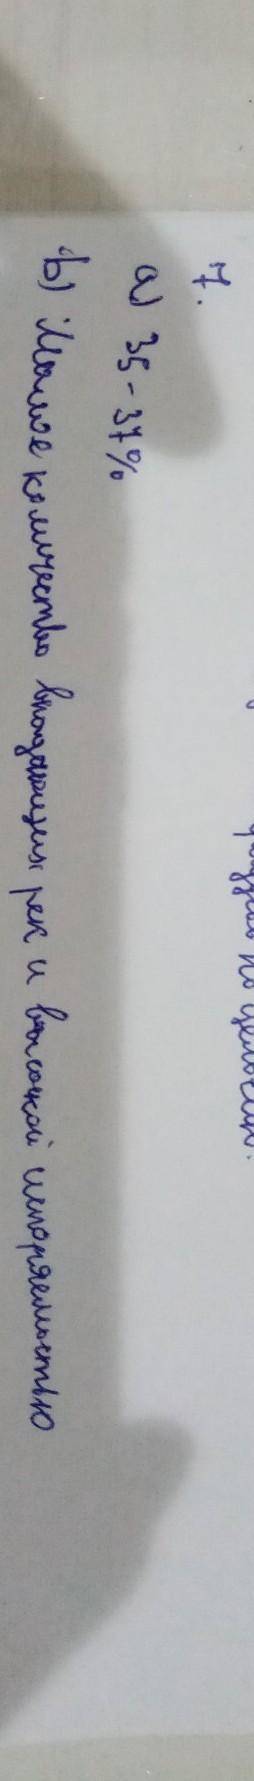 по
7.
a) 35-37%
b) Малое количество впадающих рек и высокой испаряемостью